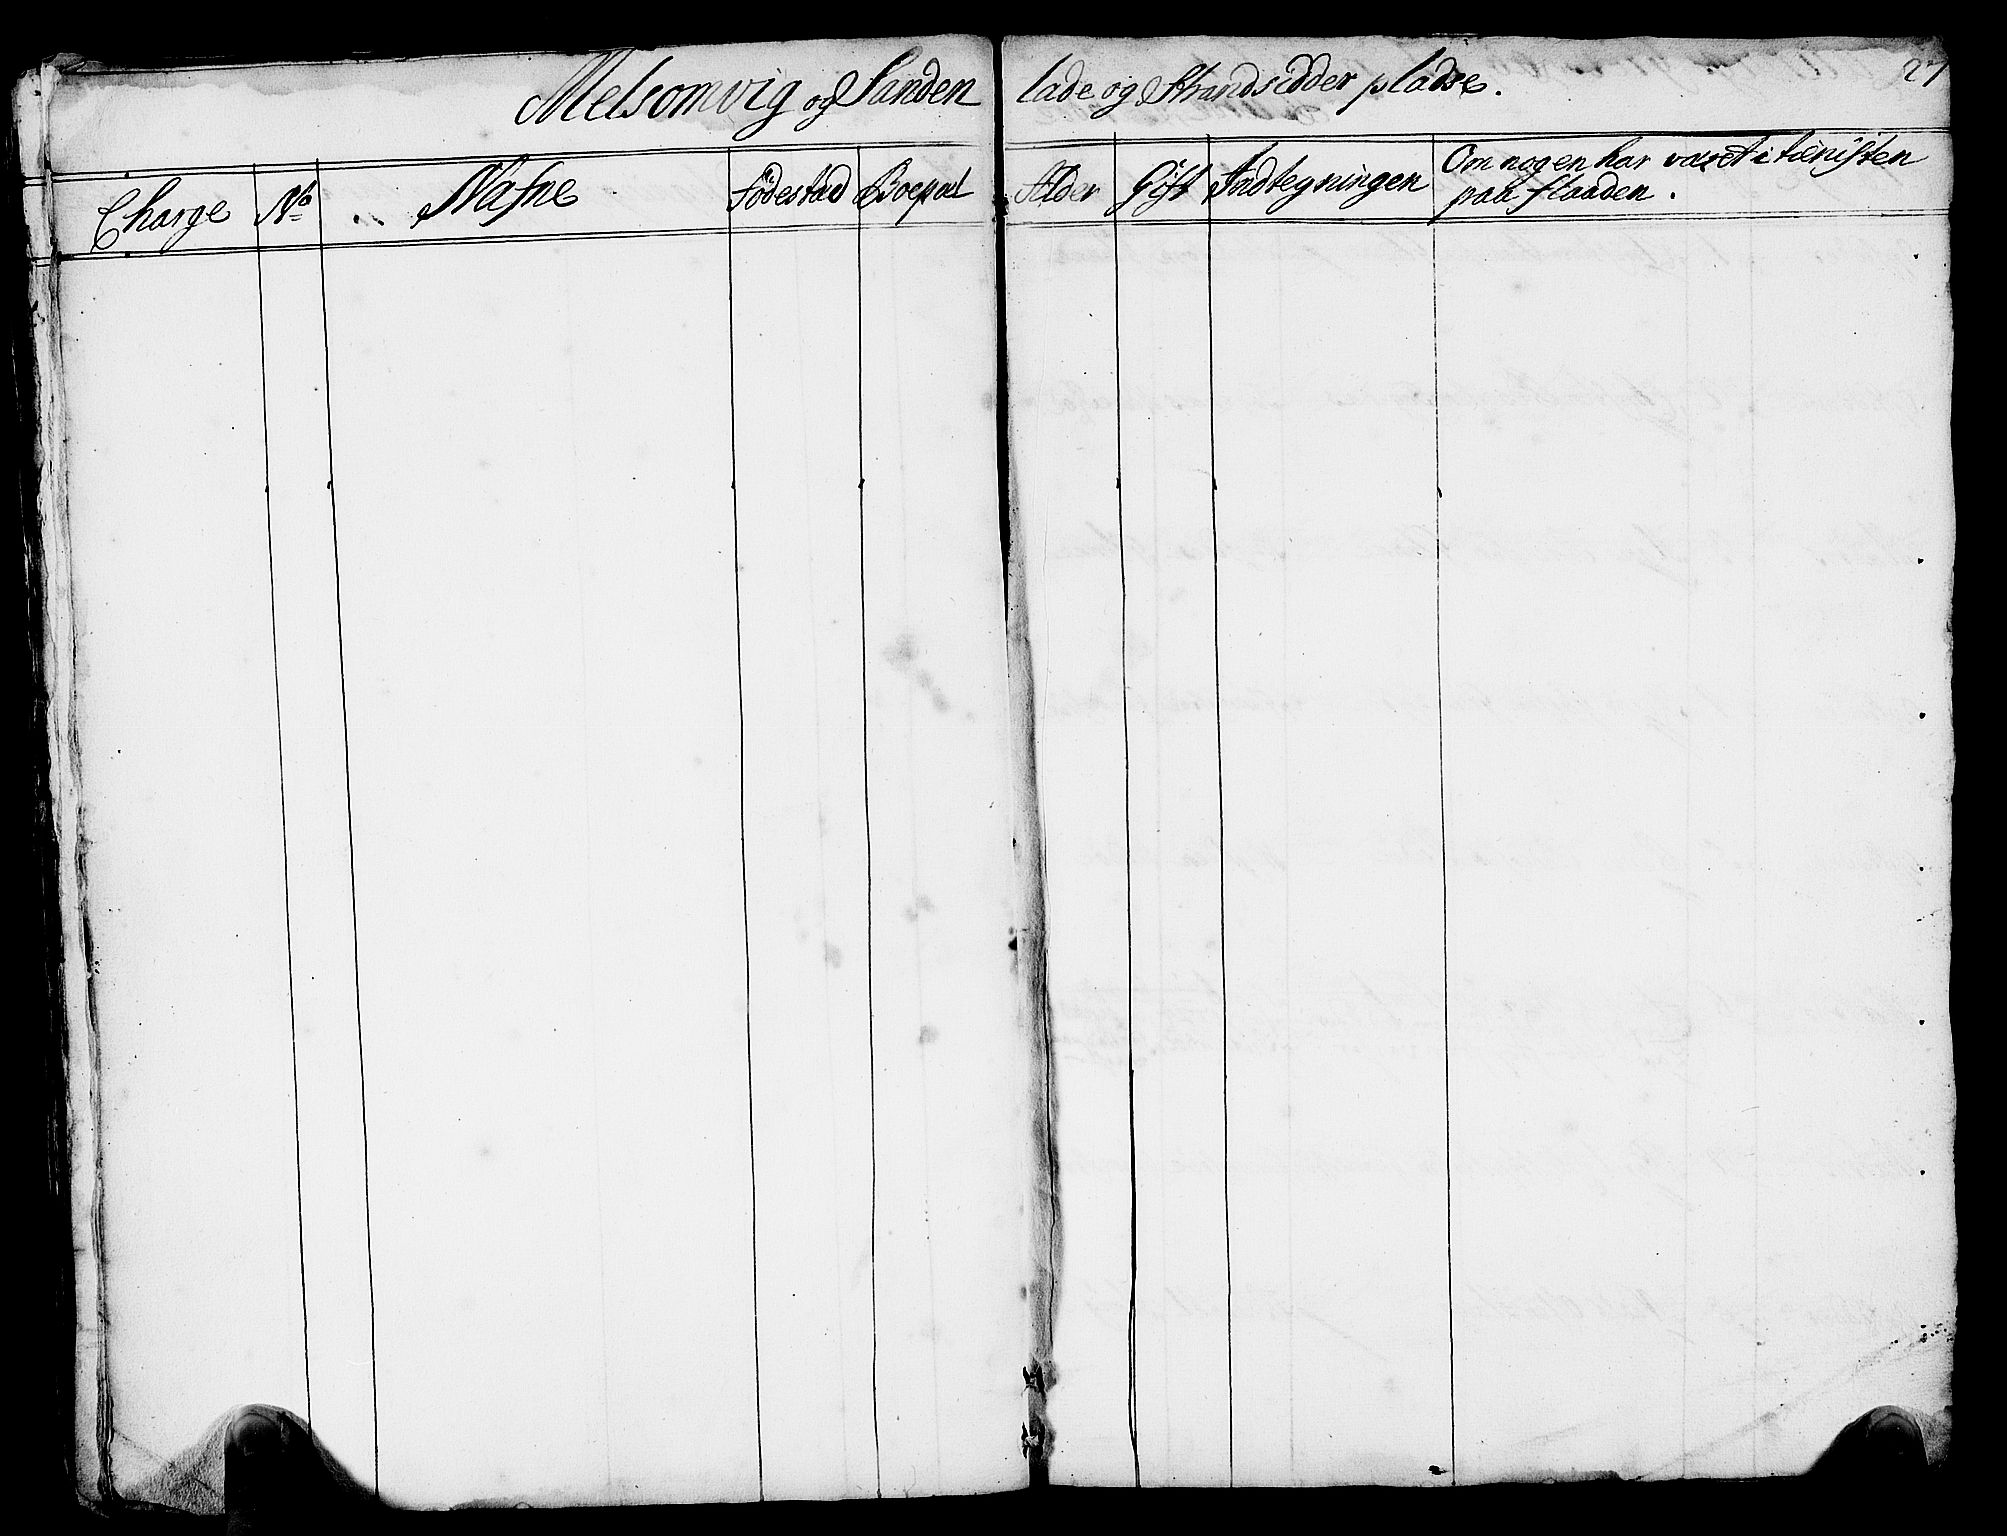 Melsomvig og Sanden lade og Strandsidder pladse. 27
Charge No Nafne Födestad Boepæl Alder Gift Indtegningen Om nogen har været i tienisten
paa flaaden.